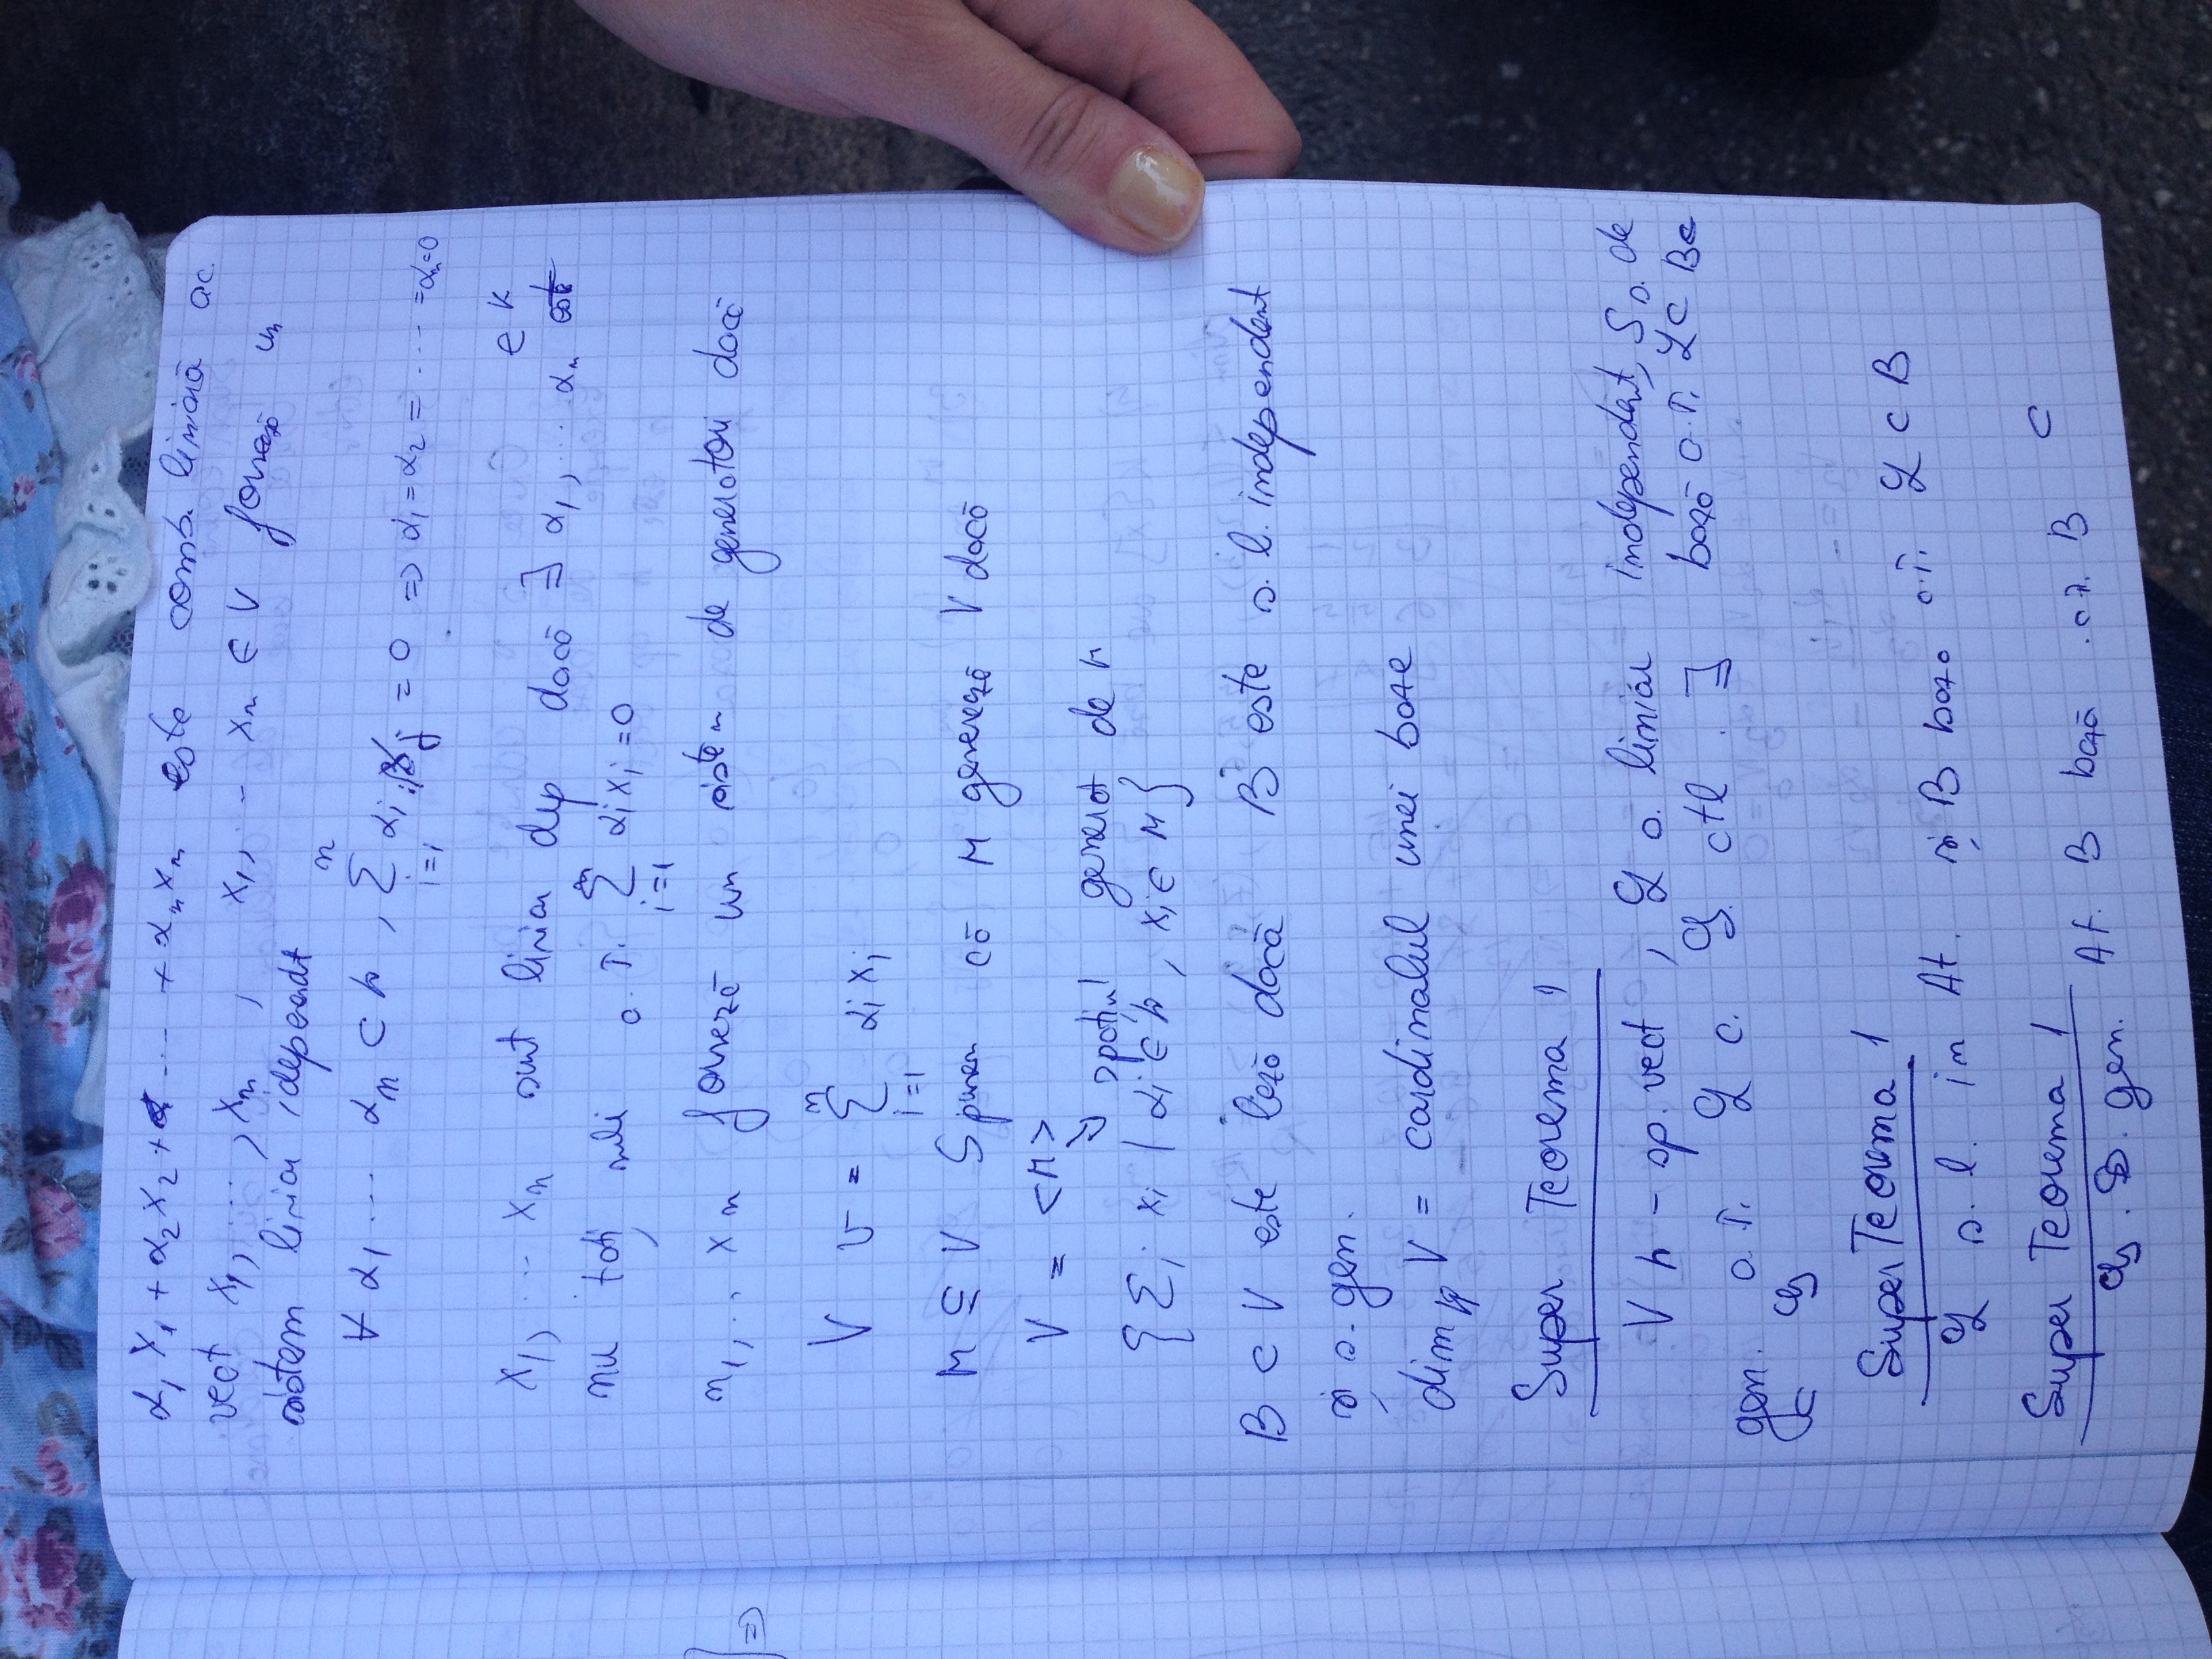 α₁x₁ + α₂x₂ + ... + αₙxₙ este comb. liniară ac.
vect x₁, ..., xₙ , x₁, .. xₙ ∈ V formează un
sistem liniar idepeendt
∀ α₁ ... αₙ ⊂ k , Σ_{i=1}^{n} αᵢ xⱼ = 0 => α₁ = α₂ = .... = αₙ = 0
x₁, ... xₙ sunt liniar dep dacă ∃ α₁, ... αₙ ∈ K
nu toți nuli a.î. Σ_{i=1}^{n} αᵢxᵢ = 0
n₁, .. xₙ formeză un sistem de generatori dacă
=>
V v = Σ_{i=1}^{n} αᵢxᵢ
M ⊆ V Spunem că M generează V dacă
V = <M>
↘ spațiul generat de M
{Σᵢ xᵢ | αᵢ ∈ k, xᵢ ∈ M}
B ⊂ V este bază dacă B este s. l. independent
și s. gen.
dim_k V = cardinalul unei baze
Super Teorema 1
V k - sp. vect , L s. liniar independent, S s. de
gen. a.î. L c. G. ∃ bază a.î. L ⊂ B ⊂
⊂ G
Super Teorema 1
L s. l. in At. și B baza a.î. L ⊂ B
Super Teorema 1
G. S. gen. At. B bază a.î. B ⊂